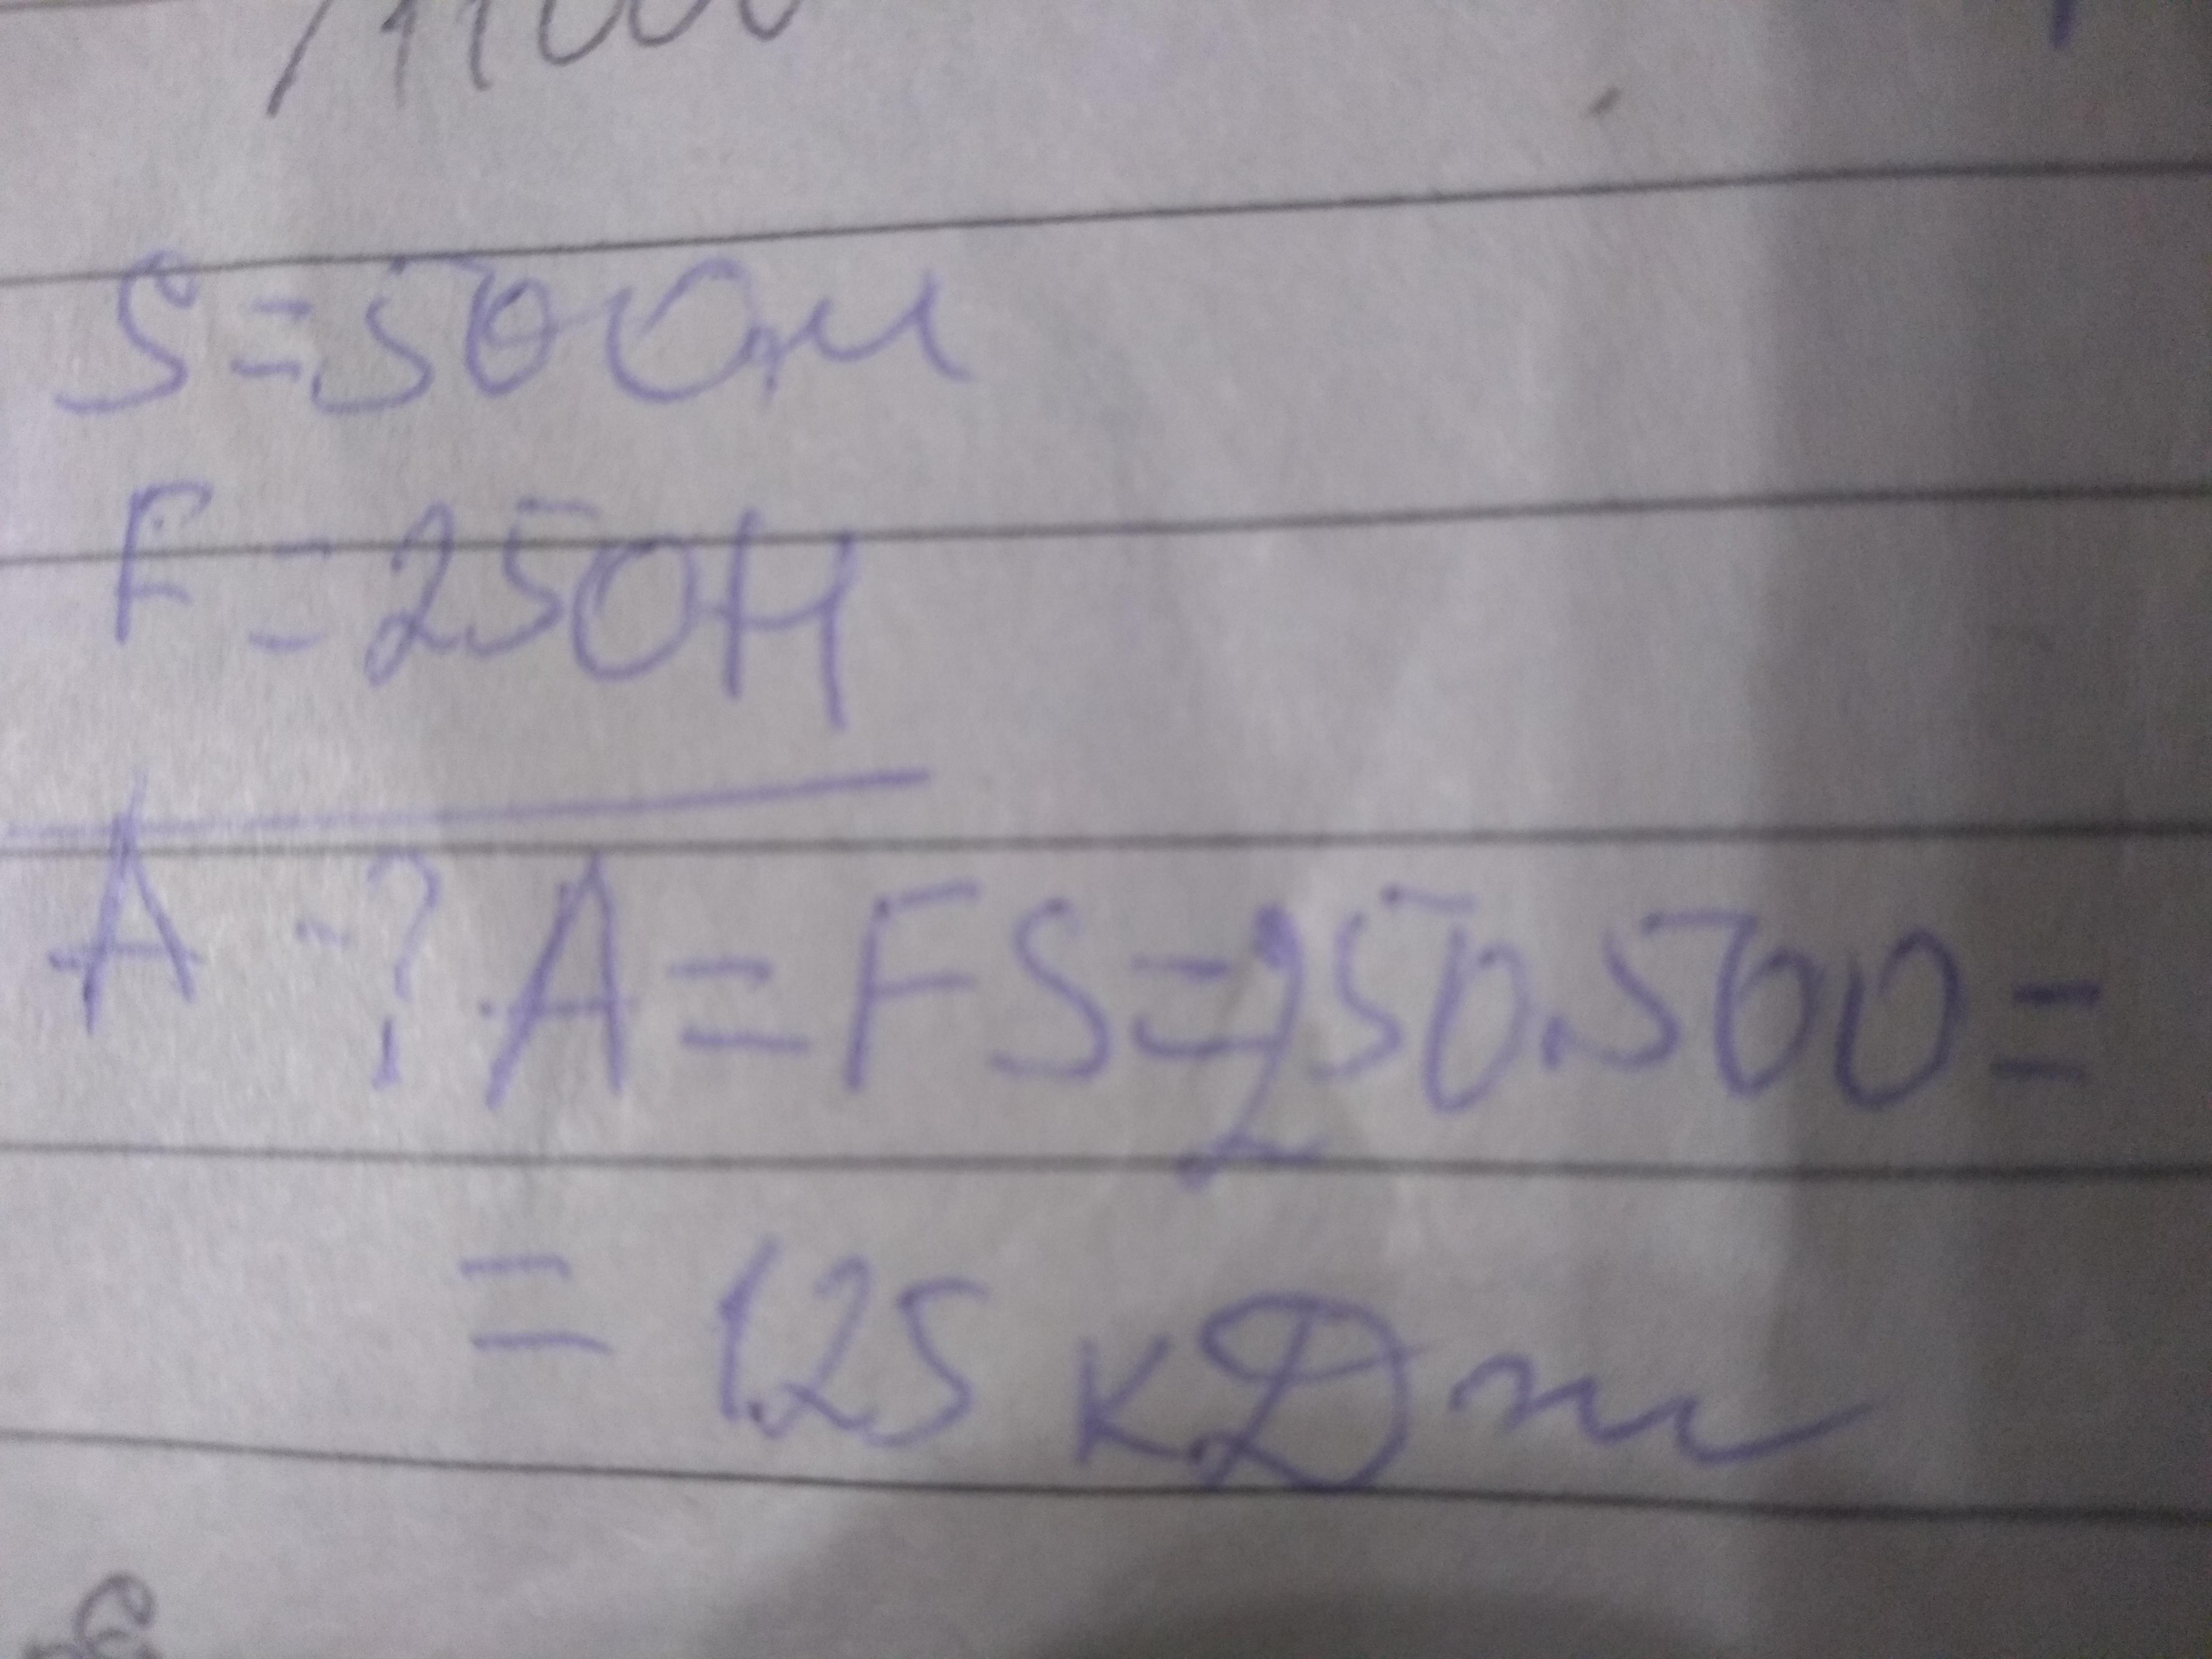 S=500м
F=250Н
A-? A=FS=250.500=
=125 кДж